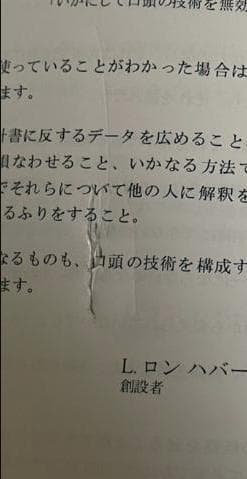 「いかにして口頭の技術を無効
使っていることがわかった場合は
ます。
計書に反するデータを広めること
損なわせること、いかなる方法で
でそれらについて他の人に解釈を
るふりをすること。
なるものも、口頭の技術を構成す
ます。
L. ロン ハバー
創設者